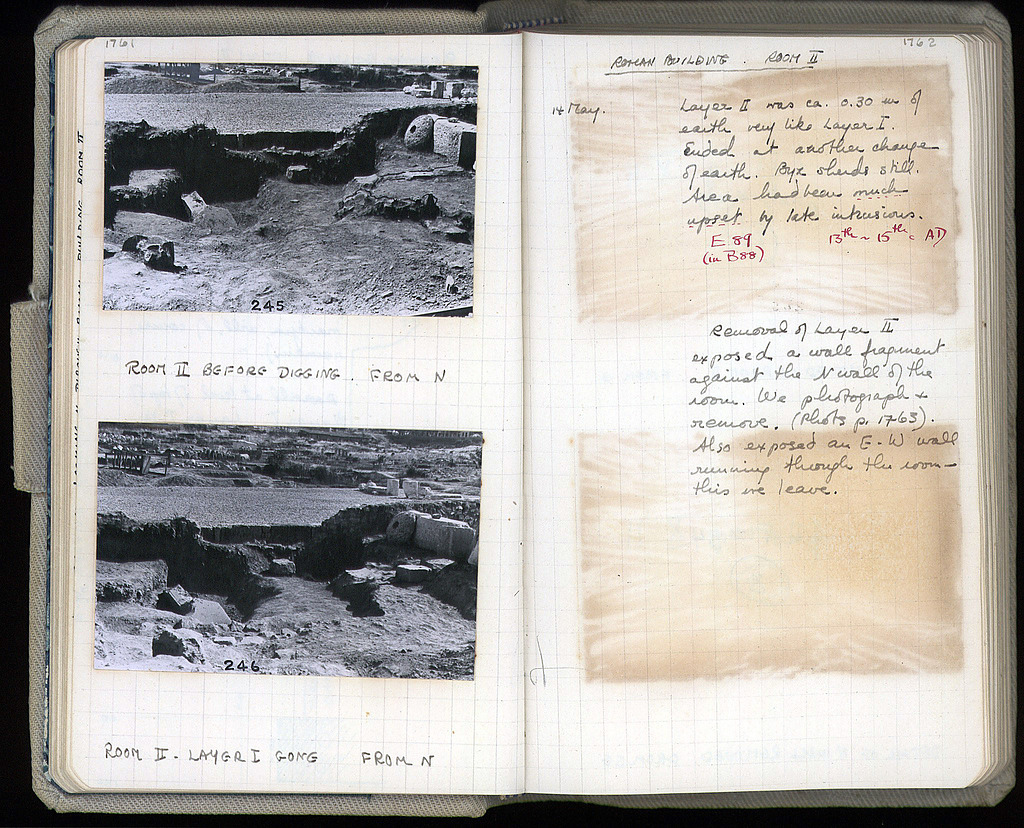 1761
245
ROOM II BEFORE DIGGING. FROM N
246
ROOM II - LAYER I GONE FROM N
1762
ROMAN BUILDING. ROOM II
14 May.
Layer II was ca. 0.30 m of
earth very like Layer I.
Ended at another change
of earth. Byz sherds still.
Area had been much
upset by late intrusions.
E 89 13th - 15th c AD
(in B88)
Removal of Layer II
exposed a wall fragment
against the N wall of the
room. We photograph +
remove. (Phots p. 1763).
Also exposed an E-W wall
running through the room -
this we leave.